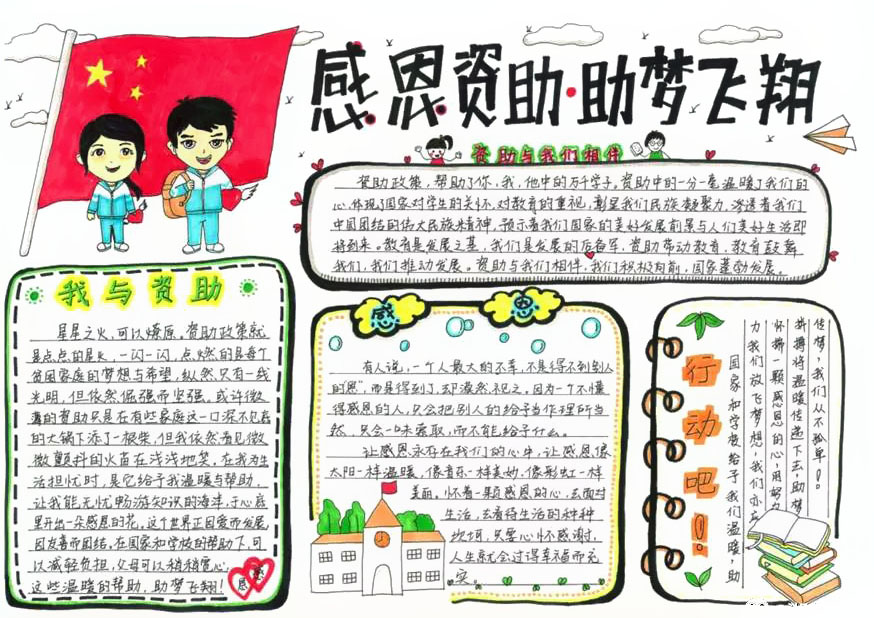 感恩资助·助梦飞翔
资助与我们相伴
资助政策,帮助了你,我,他中的万千学子。资助中的一分一毫温暖了我们的
心,体现了国家对学生的关怀,对教育的重视,彰显我们民族凝聚力,渗透着我们
中国团结的伟大民族精神,预示着我们国家的美好发展前景与人们美好生活即
将到来。教育是发展之基,我们是发展的后备军,资助带动教育,教育鼓舞
我们,我们推动发展。资助与我们相伴,我们积极向前,国家蓬勃发展。
我与资助
星星之火,可以燎原。资助政策就
是点点的星火,一闪一闪,点燃的是每个
贫困家庭的梦想与希望,纵然只有一线
光明,但依然倔强而坚强。或许微
薄的资助只是在有些家庭这一口深不见底
的大锅下添了一根柴,但我依然看见微
微颤抖的火苗在浅浅地笑。在我为生
活担忧时,是它给予我温暖与帮助,
让我能无忧畅游知识的海洋,于心底
里开出一朵感恩的花。这个世界正因爱而发展,
因友善而团结。在国家和学校的帮助下,可
以减轻负担,父母可以稍稍宽心,
这些温暖的帮助,助梦飞翔!
感恩
感恩
有人说,一个人最大的不幸,不是得不到别人
的“恩”,而是得到了,却漠然视之。因为一个不懂
得感恩的人,只会把别人的给予当作理所当
然,只会一味索取,而不能给予什么。
让感恩永存在我们的心中,让感恩像
太阳一样温暖,像音乐一样美妙,像彩虹一样
美丽,怀着一颗感恩的心,去面对
生活,去看待生活的种种
坎坷,只要心怀感谢,
人生就会过得幸福而充
实。
行动吧!
国家和学校给予我们温暖,助
力我们放飞梦想,我们亦
怀揣一颗感恩的心,用努力
拼搏将温暖传递下去,助梦
传梦,我们从不孤单!